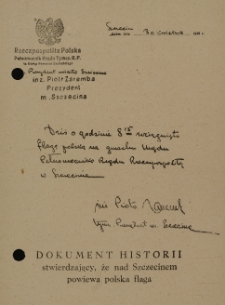 Rzeczpospolita Polska
Pełnomocnik Rządu Tymcz. R.P.
Prezydent miasta Szczecina
inż. Piotr Zaremba
Prezydent
m. Szczecina
Szczecin
30 kwietnia
Dziś o godzinie 8 wciągnięto
flagę polską na gmachu Urzędu
Pełnomocnika Rządu Rzeczypospolitej
w Szczecinie
inż Piotr Zaremba
Prezydent m. Szczecina
DOKUMENT HISTORII
stwierdzający, że nad Szczecinem
powiewa polska flaga